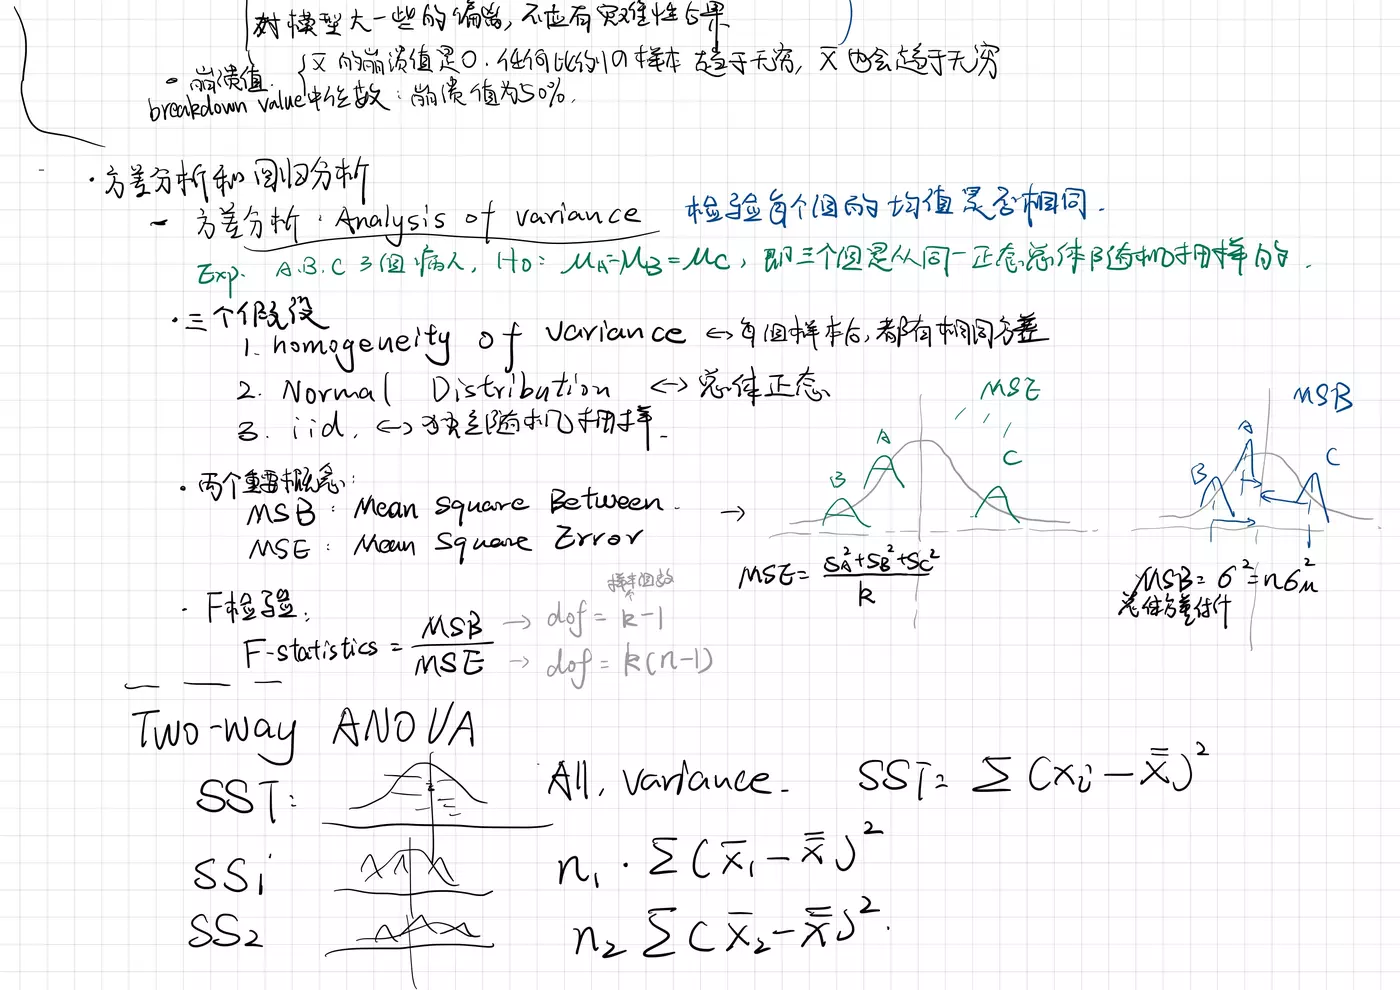 对模型大一些的偏离，不应有灾难性后果
· 崩溃值 { x̄ 的崩溃值是0. 任何比例的样本趋于无穷, x̄ 也会趋于无穷
breakdown value 中位数: 崩溃值为50%.
· 方差分析和回归分析
- 方差分析. Analysis of variance 检验每个组的均值是否相同.
Exp. A.B.C 3组病人, H0: μA=μB=μC, 即三个组是从同一正态总体随机抽样的.
· 三个假设
1. homogeneity of variance ↔ 每组样本后,都有相同方差
2. Normal Distribution ↔ 总体正态
3. iid. ↔ 独立随机抽样.
· 两个重要概念:
MSB: Mean Square Between. →
MSE: Mean Square Error
MSE
B A C
MSE = (SA²+SB²+SC²)/k
MSB
B A C
MSB = σ² = nσm²
总体方差估计
· F检验:
样本组数
F-statistics = MSB/MSE
→ dof = k-1
→ dof = k(n-1)
Two-way ANOVA
SST: All variance. SST = Σ(xi - x̿)²
SS1 n1 · Σ(x̄1 - x̿)²
SS2 n2 Σ(x̄2 - x̿)².